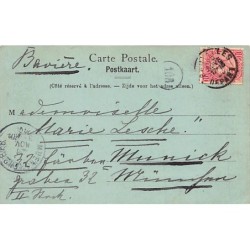 Carte Postale.
Postkaart.
(Côté réservé à l'adresse. - Zijde voor het adres alleen.)
Bavière.
Mademoiselle
Marie Lesche.
Färber Munick
graben 32 München
II Stock.